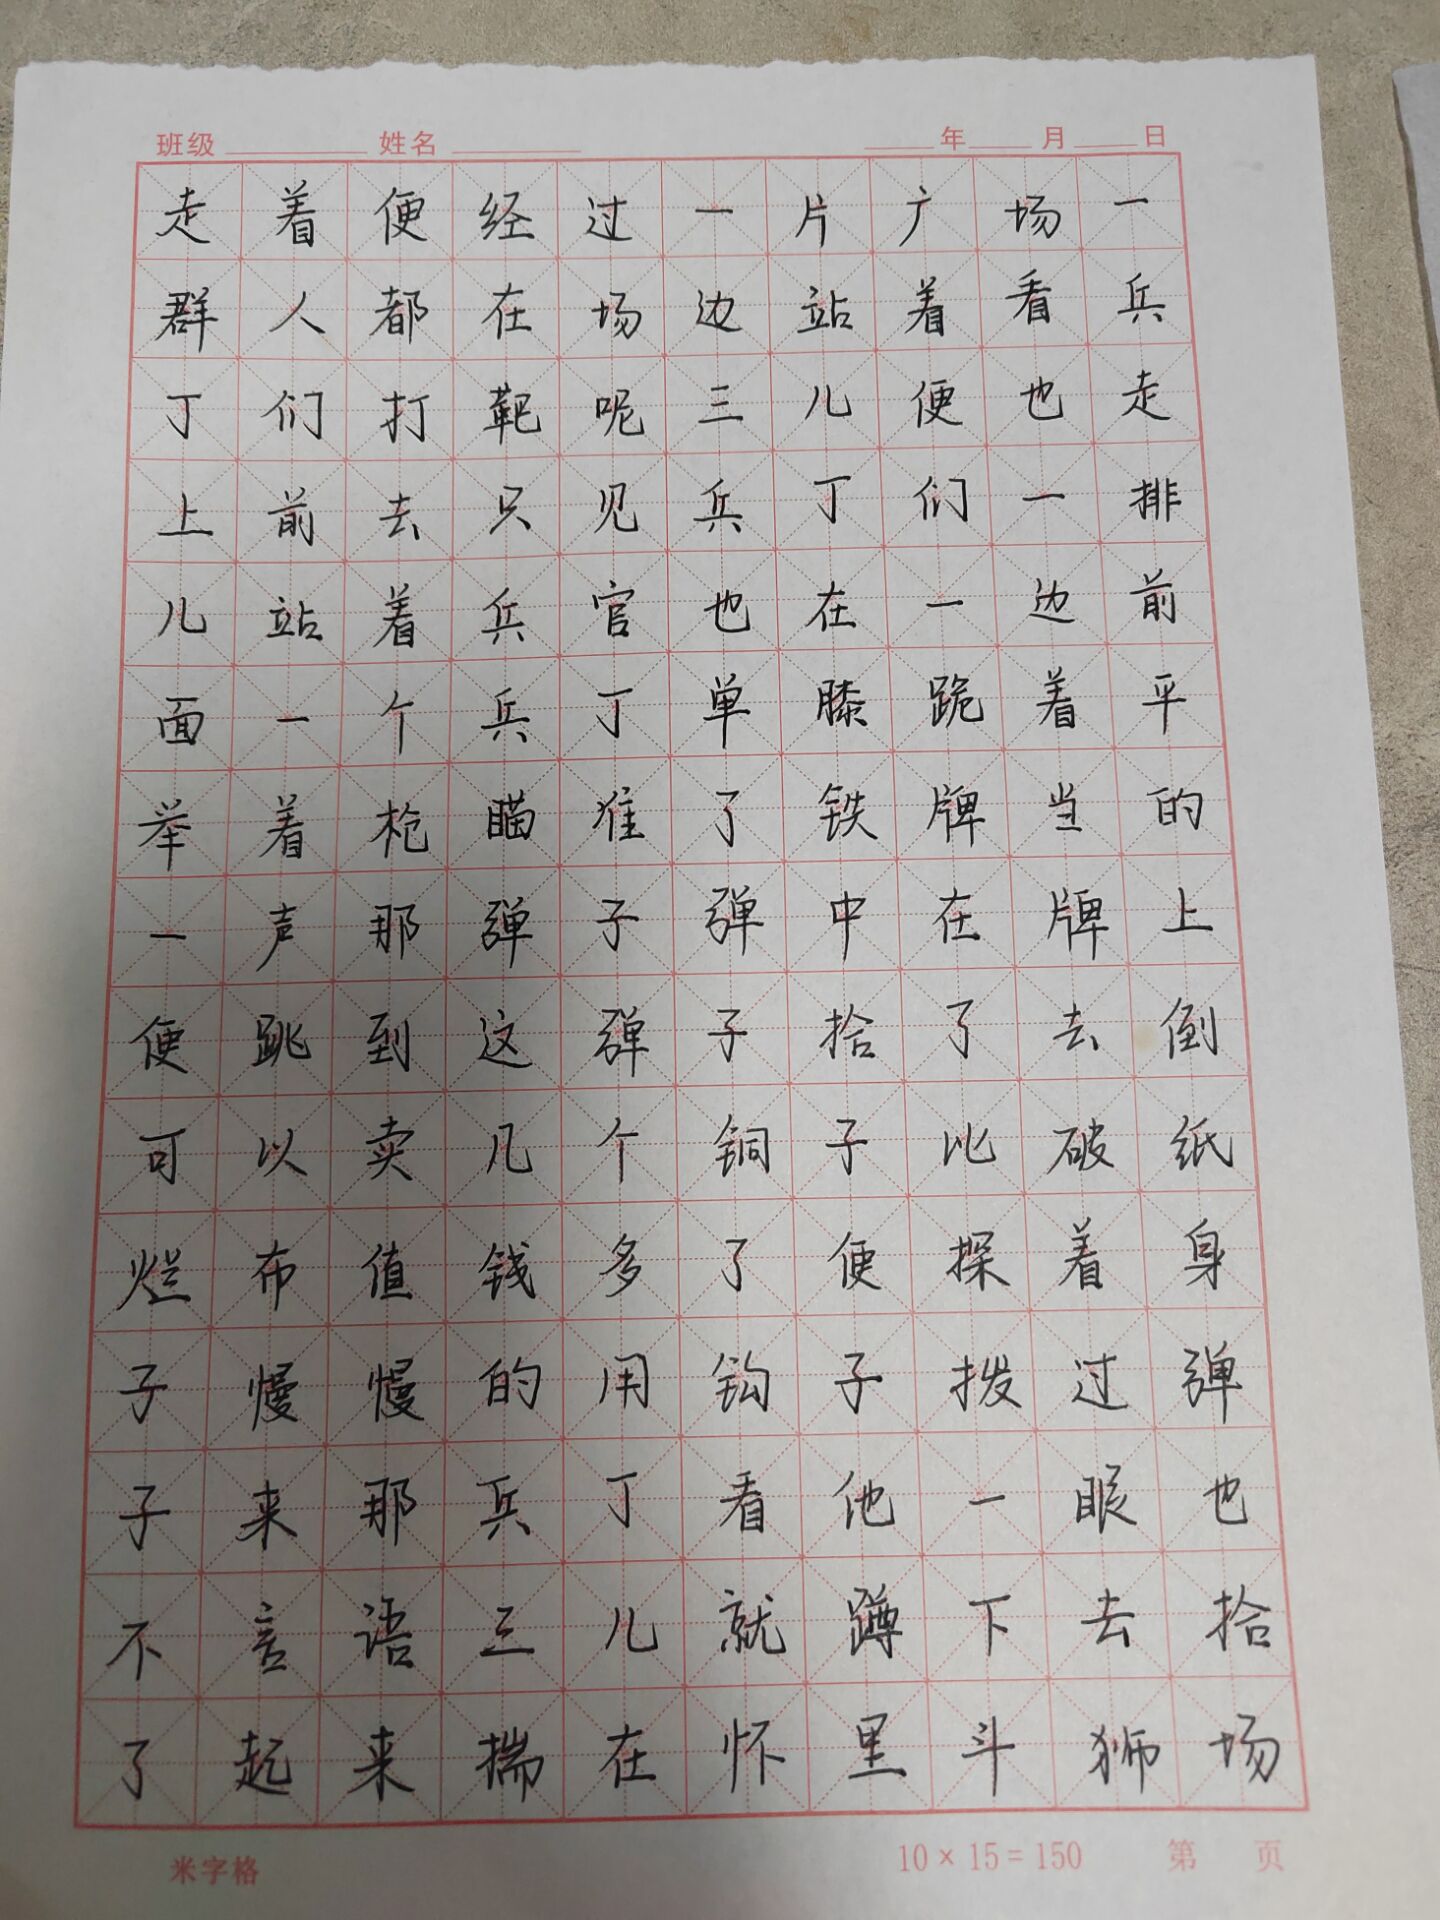 班级 姓名 年 月 日
走着便经过一片广场一
群人都在场边站着看兵
丁们打靶呢三儿便也走
上前去只见兵丁们一排
儿站着兵官也在一边前
面一个兵丁单膝跪着平
举着枪瞄准了铁牌当的
一声那弹子弹中在牌上
便跳到这弹子拾了去倒
可以卖几个铜子比破纸
烂布值钱多了便探着身
子慢慢的用钩子拨过弹
子来那兵丁看他一眼也
不言语三儿就蹲下去拾
了起来揣在怀里斗狮场
米字格 10×15=150 第 页